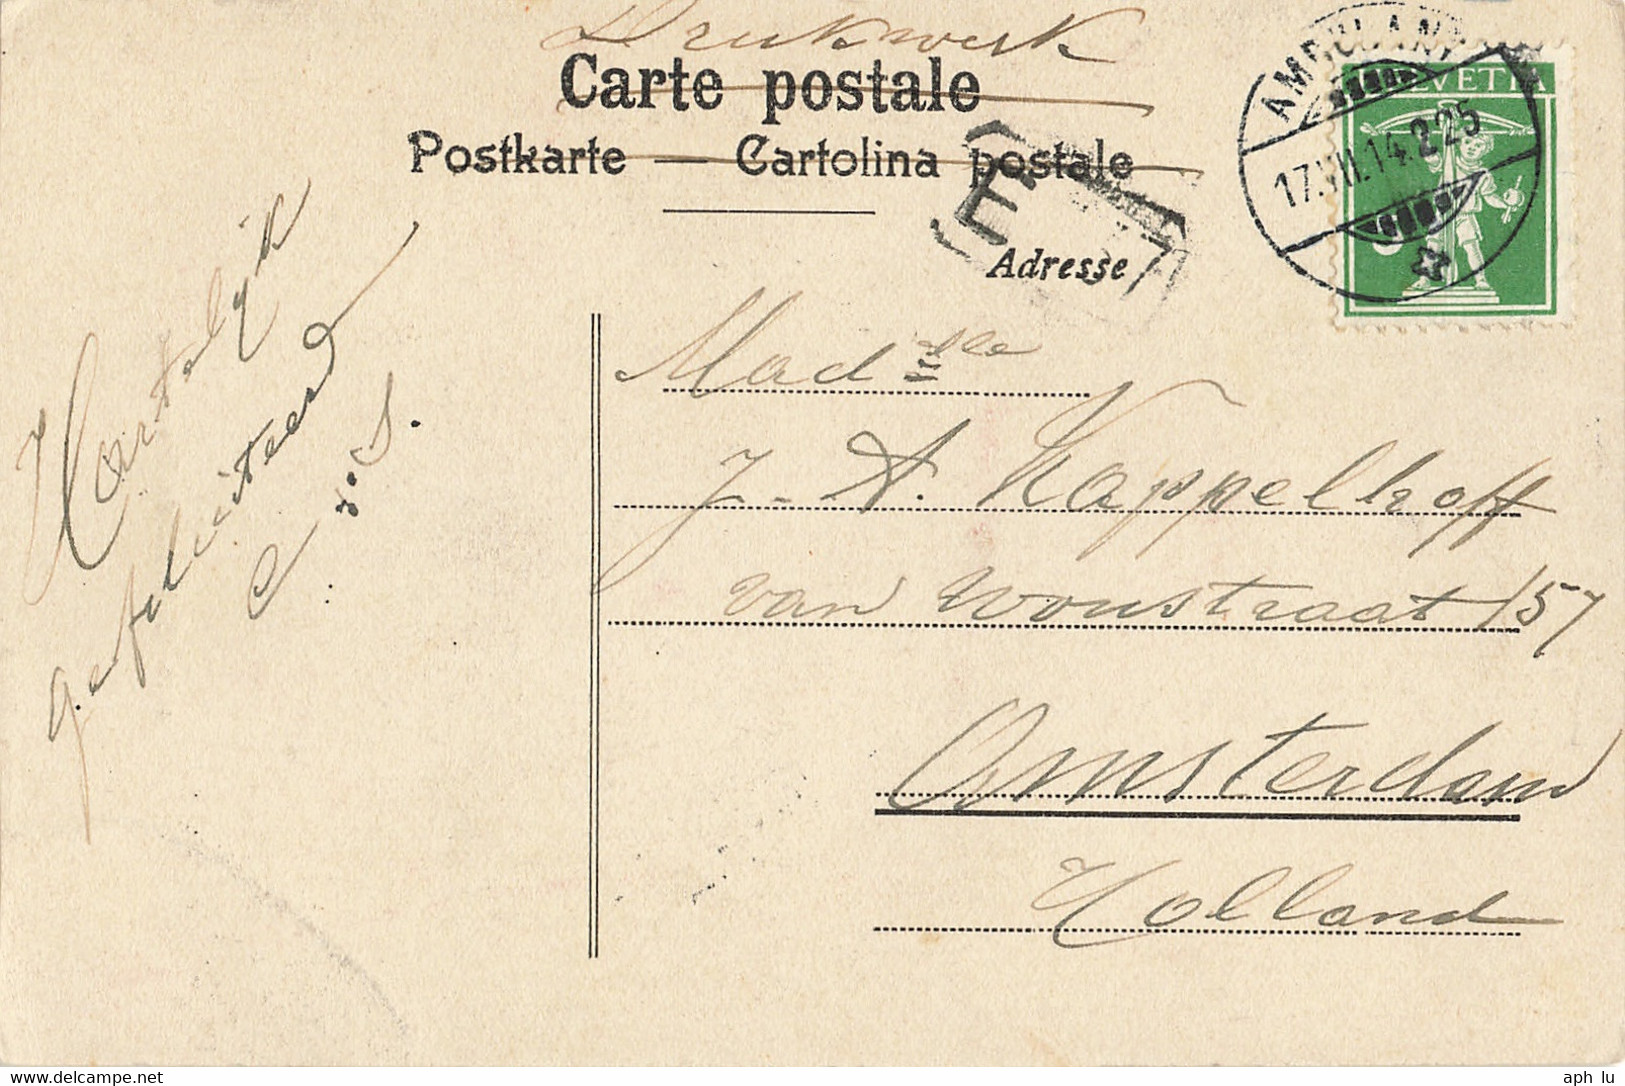 Drukwerk
Carte postale
Postkarte — Cartolina postale
Adresse
AMBULANT
17.VII.14.225
HELVETIA
E
Hartelijk
gefeliciteerd
C. v. S.
Mad.sle
J. A. Kappelhoff
van Woustraat 157
Amsterdam
Holland
www.delcampe.net
aph lu